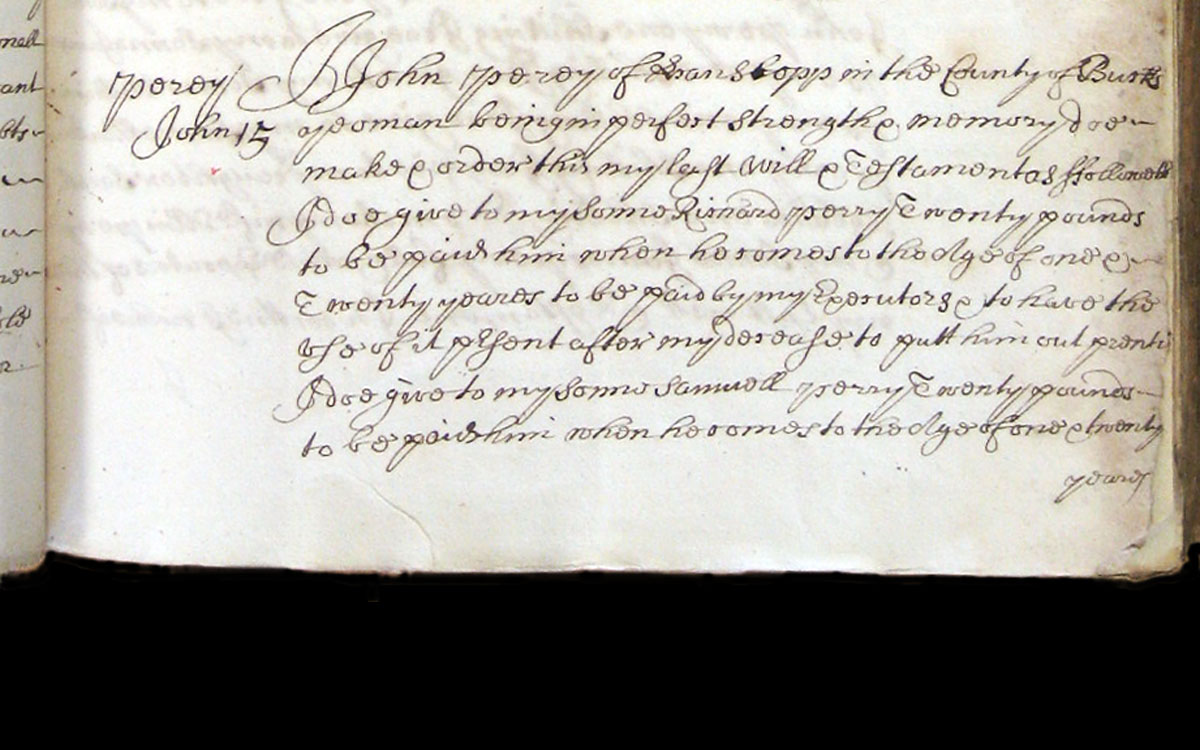 Perey
John 15
I John Perey of Hanslopp in the County of Bucks
yeoman being in perfect strength & memory doe
make & order this my last Will & Testament as ffolloweth
I doe give to my sonne Richard Perry Twenty pounds
to be paid him when he comes to the Age of one &
Twenty yeares to be paid by my Executors & to have the
use of it pñsent after my decease to putt him out prenti
I doe give to my sonne Samuell Perry Twenty pounds
to be paid him when he comes to the Age of one & twenty
yeares